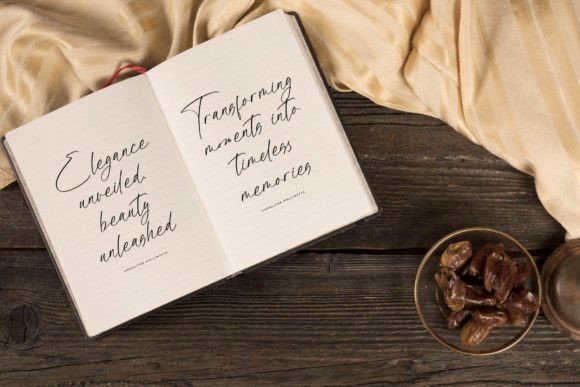 Elegance
unveiled,
beauty
unleashed
Transforming
moments into
timeless
memories